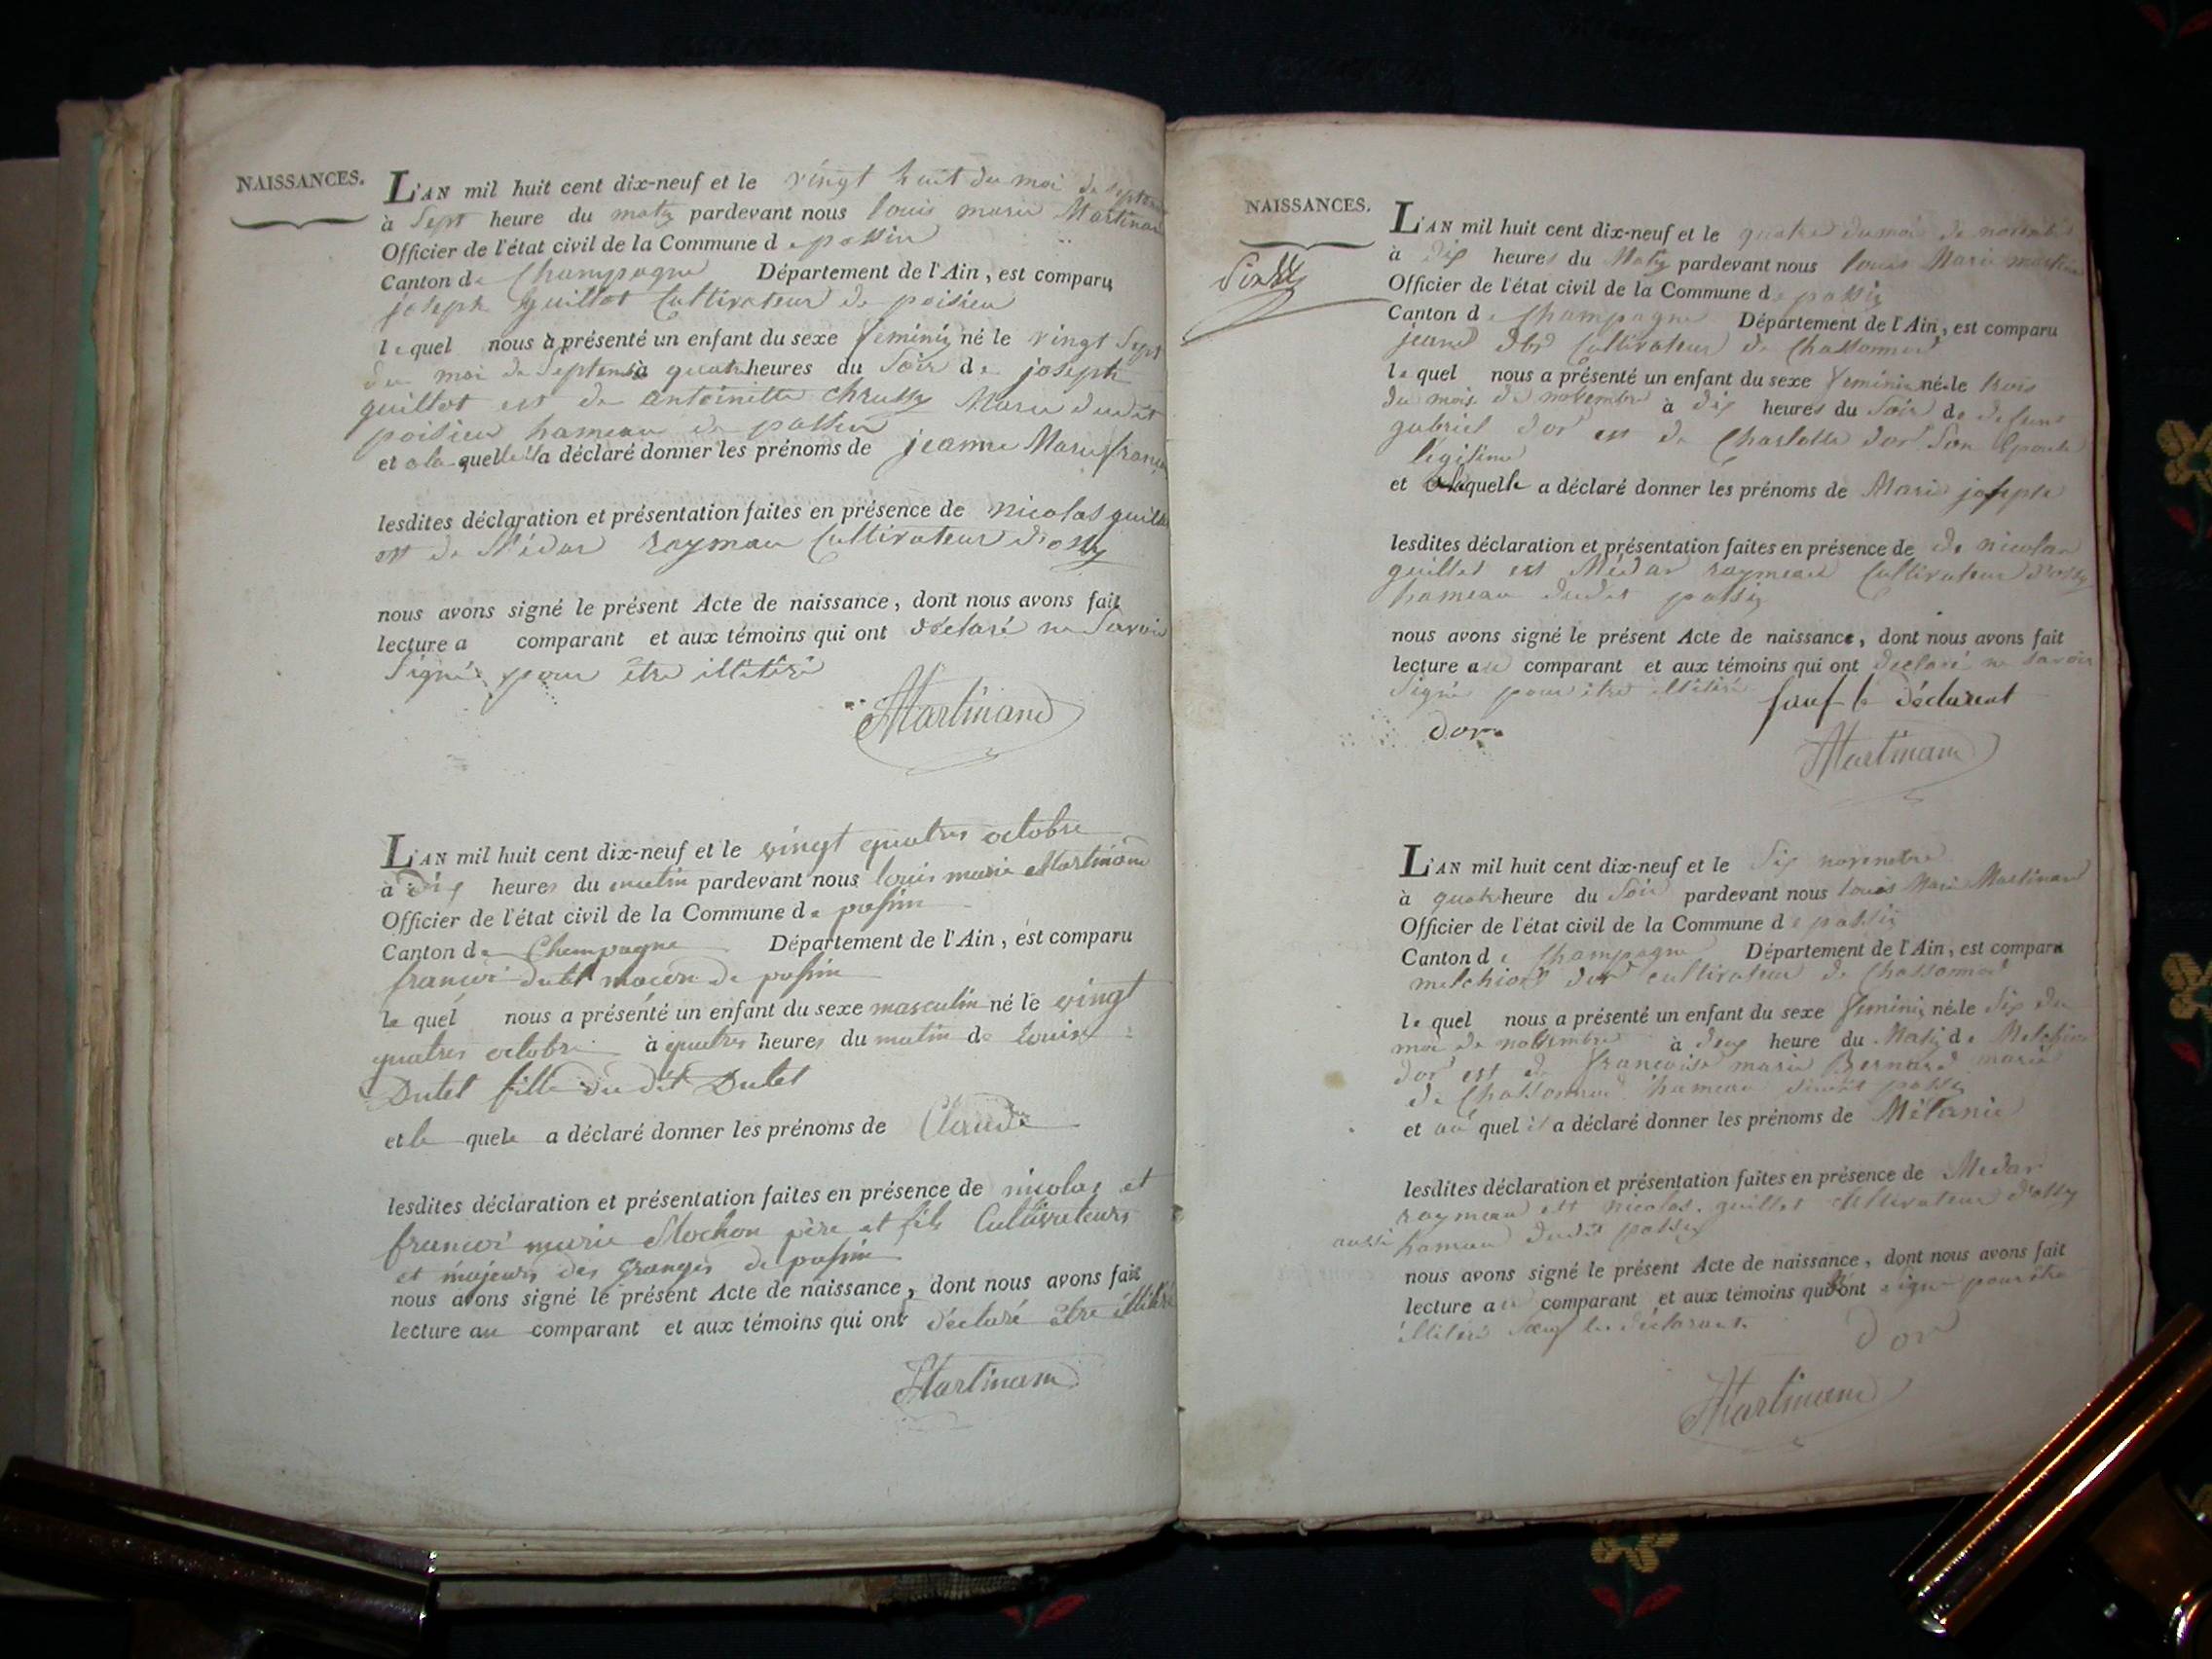 NAISSANCES.
L'AN mil huit cent dix-neuf et le vingt huit du moi de septem
à Sept heure du matin pardevant nous louis marie Martinan
Officier de l'état civil de la Commune de passin
Canton de Champagne Département de l'Ain, est comparu
joseph guillot Cultivateur de poisieu
lequel nous à présenté un enfant du sexe feminin né le vingt Sept
du moi de Septem à quatre heures du Soir de joseph
guillot est de antoinette Marie dudit
poisieu hameau de passin
et a la quelle il a déclaré donner les prénoms de jeanne Marie franç
lesdites déclaration et présentation faites en présence de nicolas guill
est de Médar raymau Cultivateur d'ossy
nous avons signé le présent Acte de naissance, dont nous avons fait
lecture a comparant et aux témoins qui ont déclaré ne Savoir
Signé pour être illitéré
Martinand
L'AN mil huit cent dix-neuf et le vingt quatres octobre
à dix heures du matin pardevant nous louis marie Martinand
Officier de l'état civil de la Commune de passin
Canton de Champagne Département de l'Ain, est comparu
françoi dutet macon de passin
le quel nous a présenté un enfant du sexe masculin né le vingt
quatres octobre à quatres heures du matin de Louise
Dutet fille du dit Dutet
et le quele a déclaré donner les prénoms de Claude
lesdites déclaration et présentation faites en présence de nicolas et
françoi marie Mochon père et fils Cultivateurs
et majeurs des granges de passin
nous avons signé le présent Acte de naissance, dont nous avons fait
lecture au comparant et aux témoins qui ont déclaré être illitéré
Martinand
NAISSANCES.
L'AN mil huit cent dix-neuf et le quatre du moi de novembre
à dix heures du Matin pardevant nous louis Marie martina
Officier de l'état civil de la Commune de passin
Canton de Champagne Département de l'Ain, est comparu
dor Cultivateur de Chassonnod
le quel nous a présenté un enfant du sexe feminin né le trois
du mois de novembre à dix heures du Soir de defunt
gabriel dor est de Charlotte dor Son Epouse
légitime
et a laquelle a déclaré donner les prénoms de Marie josephe
lesdites déclaration et présentation faites en présence de de nicolas
guillot est Médar raymeau Cultivateur d'ossy
hameau dudit passin
nous avons signé le présent Acte de naissance, dont nous avons fait
lecture au comparant et aux témoins qui ont declaré ne savoir
Signé pour être illitéré sauf le déclarent
dor
Martinand
L'AN mil huit cent dix-neuf et le Six novembre
à quatre heure du Soir pardevant nous louis Marie Martinand
Officier de l'état civil de la Commune de passin
Canton de Champagne Département de l'Ain, est comparu
melchior dor cultivateur de Chassonnod
le quel nous a présenté un enfant du sexe feminin né le Six du
moi de novembre à deux heure du Matin de Melchior
dor est de francoise marie Bernard marié
de Chassonnod hameau dudit passin
et au quel il a déclaré donner les prénoms de Mélanie
lesdites déclaration et présentation faites en présence de Medar
raymeau est nicolas guillot Cultivateur d'ossy
aussi hameau dudit passin
nous avons signé le présent Acte de naissance, dont nous avons fait
lecture au comparant et aux témoins qui ont signé pour être
illitéré Sauf le déclarant.
dor
Martinand